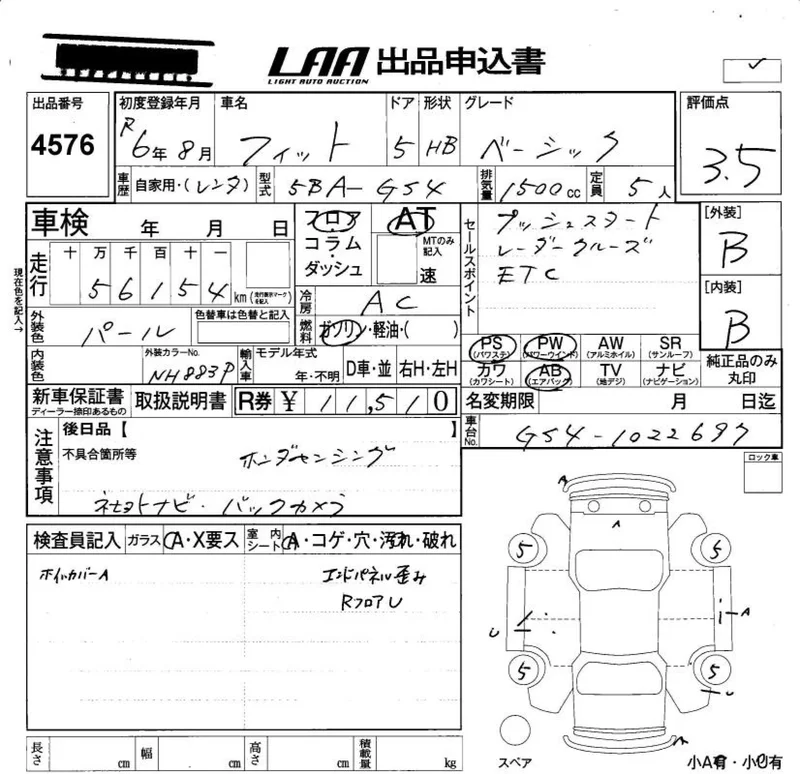 LAA 出品申込書
LIGHT AUTO AUCTION
出品番号 初度登録年月 車名 ドア 形状 グレード 評価点
4576 R6年8月 フィット 5 HB ベーシック 3.5
車歴 自家用・(レンタ) 型式 5BA-GS4 排気量 1500cc 定員 5人
車検 年 月 日 フロア AT セールスポイント プッシュスタート [外装]
走行 十 万 千 百 十 一 コラム・ダッシュ MTのみ記入 速 レーダークルーズ B
現在色を記入→ 5 6 1 5 4 km (走行表示マークを記入) ETC [内装]
冷房 AC B
外装色 パール 色替車は色替と記入 燃料 ガソリン・軽油・( )
PS (パワステ) PW (パワーウインド) AW (アルミホイル) SR (サンルーフ)
内装色 外装カラーNo. NH883P 輸入車 モデル年式 年・不明 D車・並 右H・左H
カワ (カワシート) AB (エアバック) TV (地デジ) ナビ (ナビゲーション) 純正品のみ丸印
新車保証書 ディーラー捺印あるもの 取扱説明書 R券 ¥ 11,510 名変期限 月 日迄
車台No. GS4-1022697
注意事項 後日品【 】
不具合箇所等 ホンダセンシング
ネセットナビ・バックカメラ
ロック車
検査員記入 ガラス A・X要ス 室内シート A・コゲ・穴・汚れ・破れ
ホイルカバーA エンドパネル歪み
RフロアU
A
A
5 5
U A
5 5
U
A
スペア 小A有・小U有
長さ cm 幅 cm 高さ cm 積載量 kg